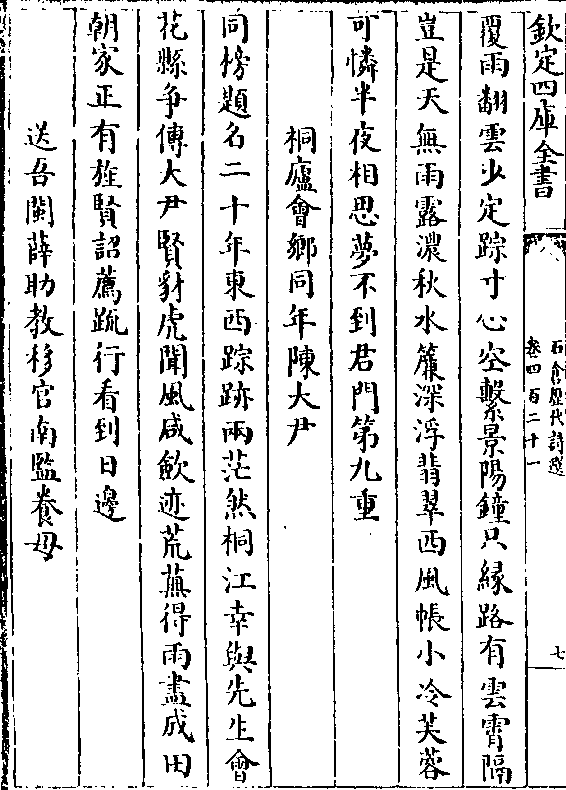 欽定四庫全書
石倉歷代詩選
卷四百二十一
七
覆雨翻雲少定踪寸心空繫景陽鐘只緣路有雲霄隔
豈是天無雨露濃秋水簾深浮翡翠西風帳小冷芙蓉
可憐半夜相思夢不到君門第九重
桐廬會鄉同年陳大尹
同榜題名二十年東西踪跡兩茫然桐江幸與先生會
花縣争傳大尹賢豺虎聞風咸歛迹荒蕪得雨盡成田
朝家正有旌賢詔薦疏行看到日邊
送吾閩薛助教移官南監養母